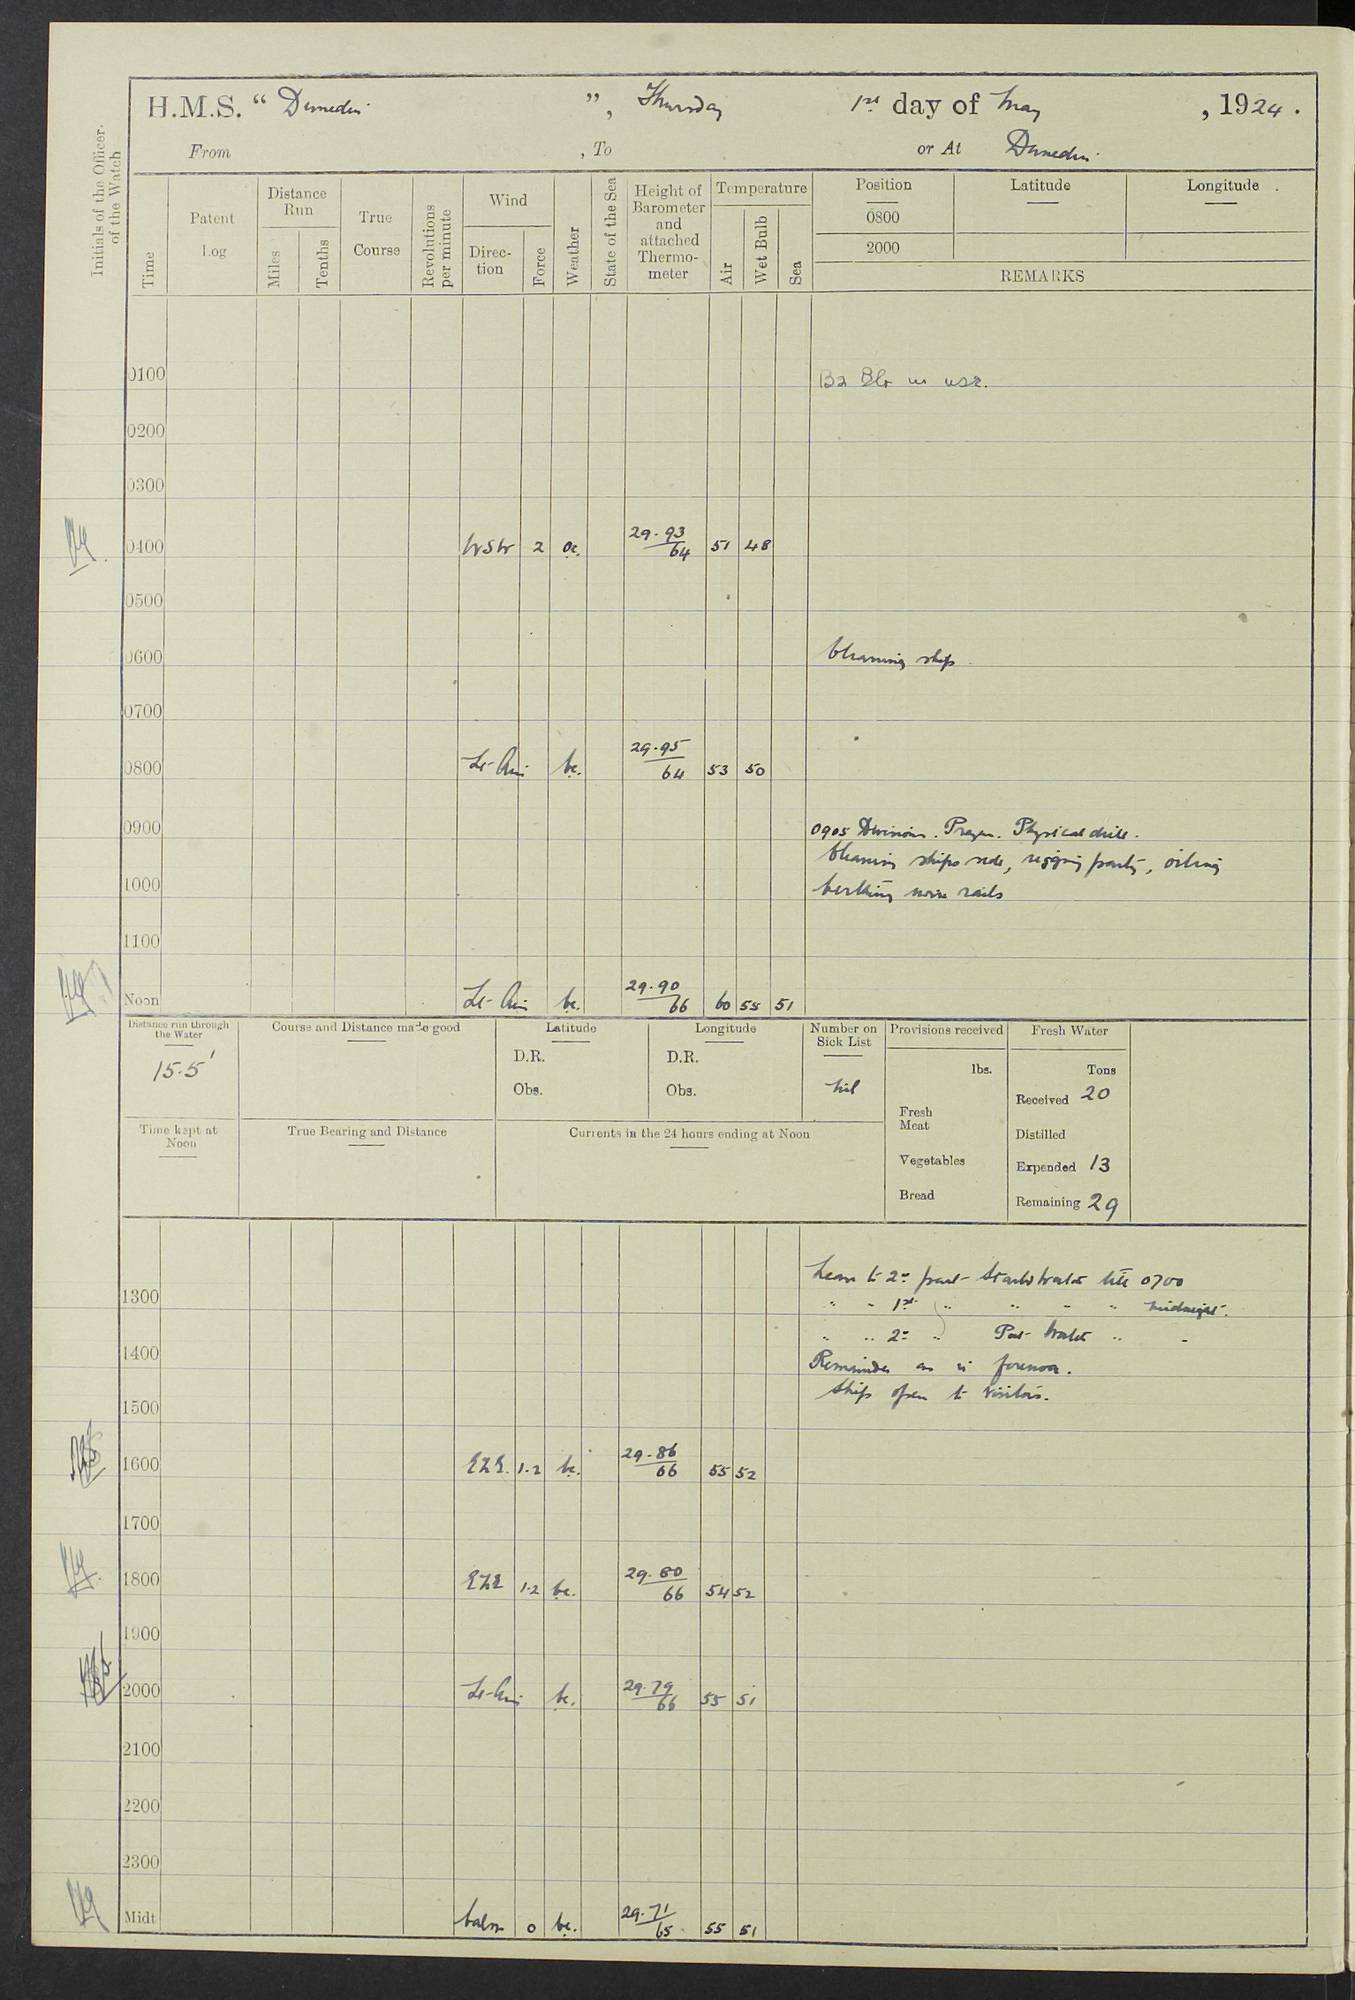 H.M.S. “ Dunedin ”, Thursday 1st day of May , 1924 .
From , To or At Dunedin.
Initials of the Officer of the Watch
Time
Patent Log
Distance Run
Miles
Tenths
True Course
Revolutions per minute
Wind
Direc-tion
Force
Weather
State of the Sea
Height of Barometer and attached Thermo-meter
Temperature
Air
Wet Bulb
Sea
Position Latitude Longitude
0800
2000
REMARKS
0100 B2 Blr in use.
0200
0300
0400 WSW 2 oc. 29.93 64 51 48
0500
0600 Cleaning ship
0700
0800 Lt Airs bc. 29.95 64 53 50
0900 0905 Divisions. Prayers. Physical drill.
Cleaning ships side, rigging party, oiling
1000 berthing wire rails
1100
Noon Lt Airs bc. 29.90 66 60 55 51
Distance run through the Water
15.5'
Course and Distance made good
Latitude
D.R.
Obs.
Longitude
D.R.
Obs.
Number on Sick List
Nil
Provisions received
lbs.
Fresh Meat
Vegetables
Bread
Fresh Water
Tons
Received 20
Distilled
Expended 13
Remaining 29
Time kept at Noon
True Bearing and Distance
Currents in the 24 hours ending at Noon
Leave to 2nd part Starbd Watch till 0700
1300 " " 1st " " " " midnight.
" " 2nd " Port Watch " "
1400 Remainder as in forenoon.
Ship open to visitors.
1500
1600 ENE. 1-2 bc. 29.86 66 55 52
1700
1800 ENE 1-2 bc. 29.80 66 54 52
1900
2000 Lt-Airs bc. 29.79 66 55 51
2100
2200
2300
Midt Calm 0 bc. 29.71 65 55 51